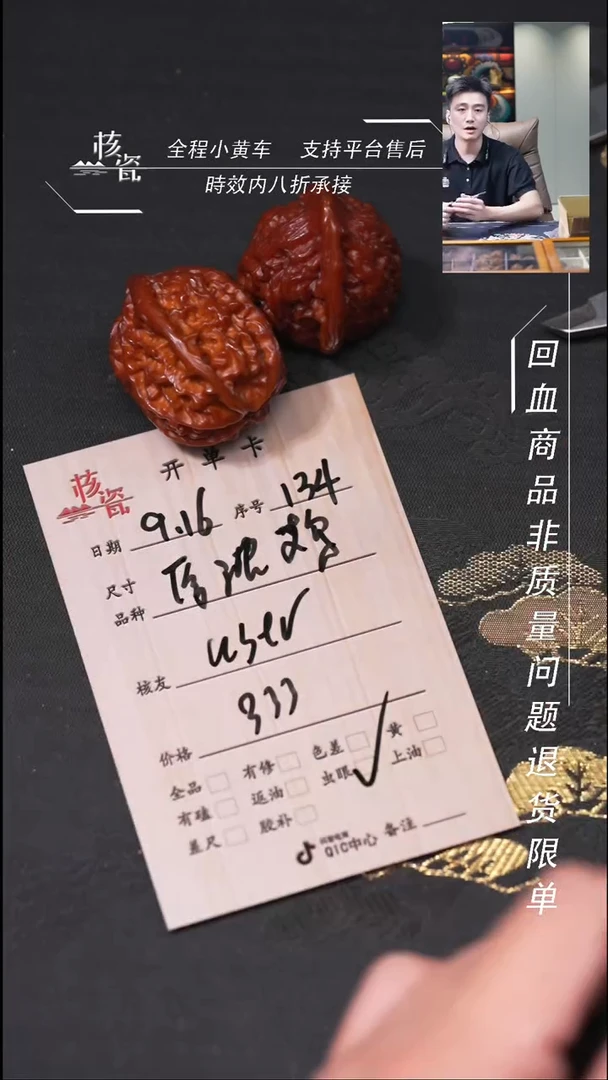 核瓷
全程小黄车 支持平台售后
時效内八折承接
回血商品非质量问题退货限单
核瓷
开单卡
日期 9.16 序号 134
尺寸
品种
核友 user
价格 933
全品 有修 色差 黄
有磕 返油 虫眼 上油
盖尺 胶补
QIC中心 备注